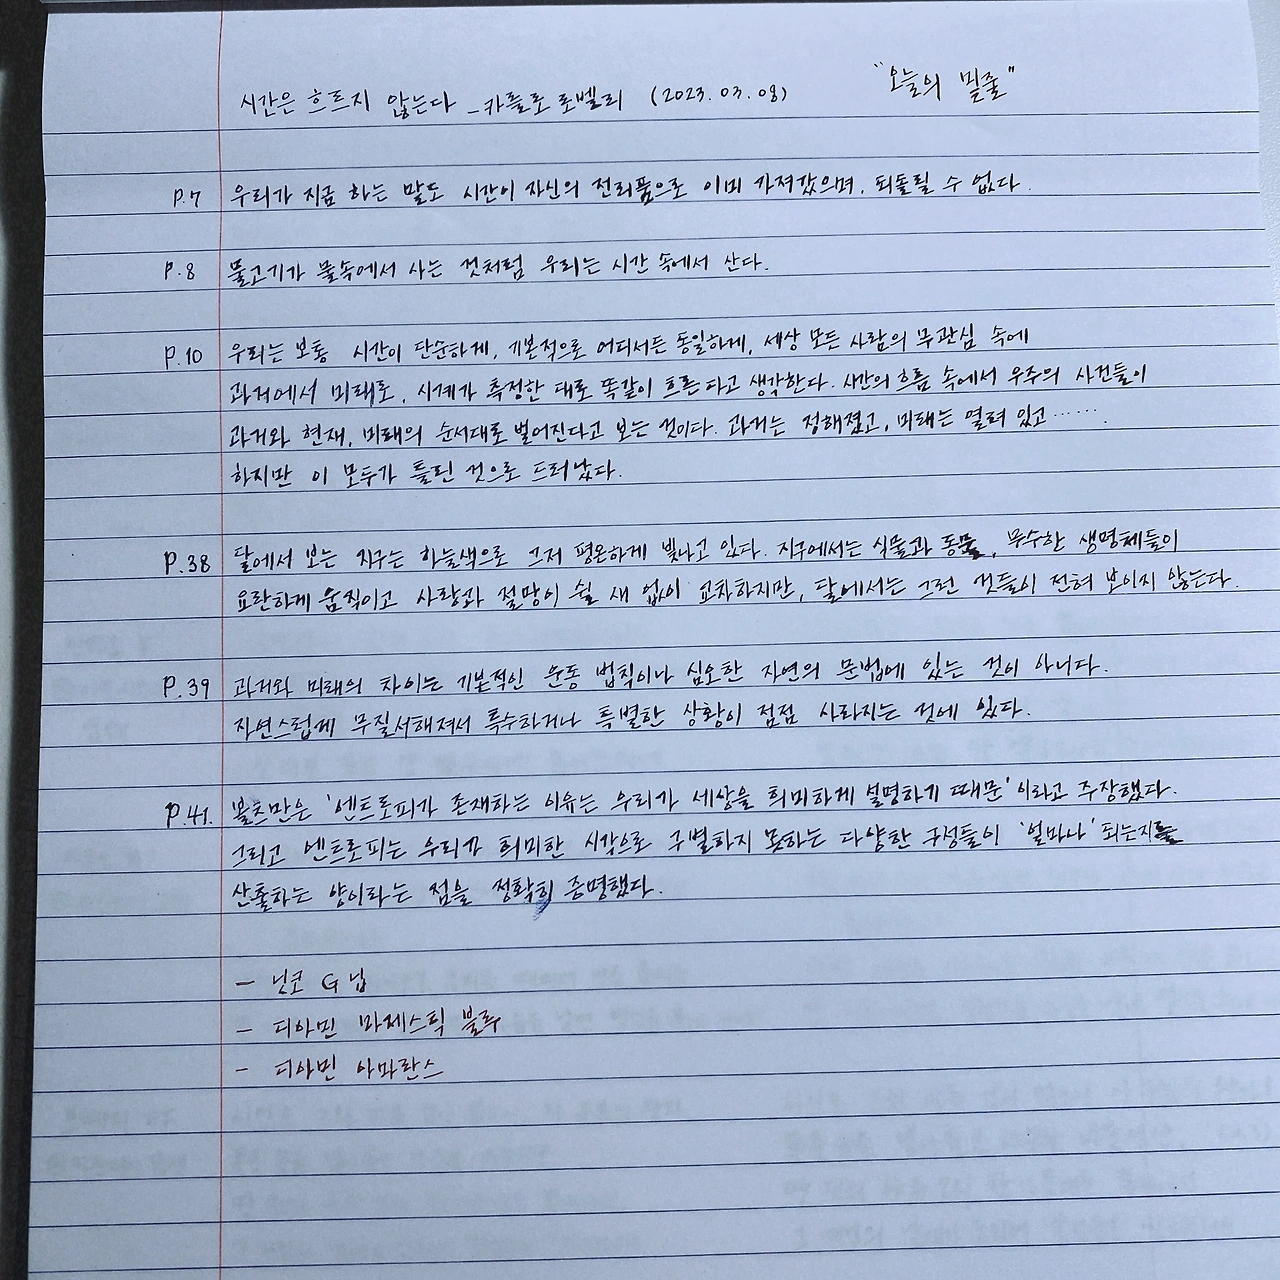 시간은 흐르지 않는다 - 카를로 로벨리 (2023.03.08) "오늘의 밑줄"
P.7 우리가 지금 하는 말도 시간이 자신의 전리품으로 이미 가져갔으며, 되돌릴 수 없다.
P.8 물고기가 물속에서 사는 것처럼 우리는 시간 속에서 산다.
P.10 우리는 보통 시간이 단순하게, 기본적으로 어디서든 동일하게, 세상 모든 사람의 무관심 속에
과거에서 미래로, 시계가 측정한 대로 똑같이 흐른다고 생각한다. 시간의 흐름 속에서 우주의 사건들이
과거와 현재, 미래의 순서대로 벌어진다고 보는 것이다. 과거는 정해졌고, 미래는 열려 있고……
하지만 이 모두가 틀린 것으로 드러났다.
P.38 달에서 보는 지구는 하늘색으로 그저 평온하게 빛나고 있다. 지구에서는 식물과 동물, 무수한 생명체들이
요란하게 움직이고 사랑과 절망이 쉴 새 없이 교차하지만, 달에서는 그런 것들이 전혀 보이지 않는다.
P.39 과거와 미래의 차이는 기본적인 운동 법칙이나 심오한 자연의 문법에 있는 것이 아니다.
자연스럽게 무질서해져서 특수하거나 특별한 상황이 점점 사라지는 것에 있다.
P.41. 볼츠만은 '엔트로피가 존재하는 이유는 우리가 세상을 희미하게 설명하기 때문'이라고 주장했다.
그리고 엔트로피는 우리가 희미한 시각으로 구별하지 못하는 다양한 구성들이 '얼마나' 되는지를
산출하는 양이라는 점을 정확히 증명했다.
- 닛코 G닙
- 디아민 마제스틱 블루
- 디아민 아마란스